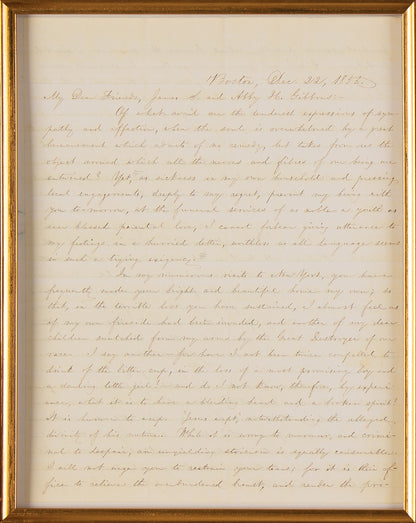 Boston, Dec. 22, 1855.
My Dear Friends, James S. and Abby H. Gibbons:
Of what avail are the tenderest expressions of sym-
pathy and affection, when the soul is overwhelmed by a great
bereavement which admits of no remedy, but takes from us the
object around which all the nerves and fibres of our being are
entwined? Yet, as sickness in my own household and pressing
local engagements, deeply to my regret, prevent my being with
you to-morrow, at the funeral services of as noble a youth as
ever blessed parental love, I cannot forbear giving utterance to
my feelings in a hurried letter, worthless as all language seems
in such a trying exigency.
In my numerous visits to New York, you have
frequently made your bright and beautiful home my own; so
that, in the terrible loss you have sustained, I almost feel as
if my own fireside had been invaded, and another of my dear
children snatched from my arms by the Great Destroyer of our
race. I say another—for have I not been twice compelled to
drink of the bitter cup, in the loss of a most promising boy and
a darling little girl? and do I not know, therefore, by experi-
ence, what it is to have a bleeding heart and a broken spirit?
It is human to weep. "Jesus wept," notwithstanding the alleged
divinity of his nature. While it is wrong to murmur, and crimi-
nal to despair, an unyielding stoicism is equally censurable.
I will not urge you to restrain your tears; for it is their of-
fice to relieve the overburdened heart, and render the pro-